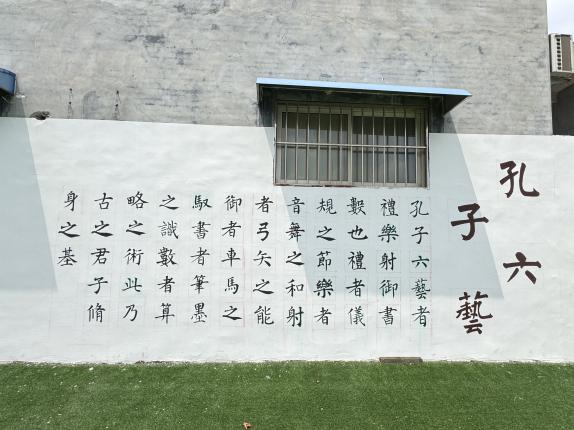 孔子六藝
孔子六藝者
禮樂射御書
數也禮者儀
規之節樂者
音舞之和射
者弓矢之能
御者車馬之
馭書者筆墨
之識數者算
略之術此乃
古之君子脩
身之基